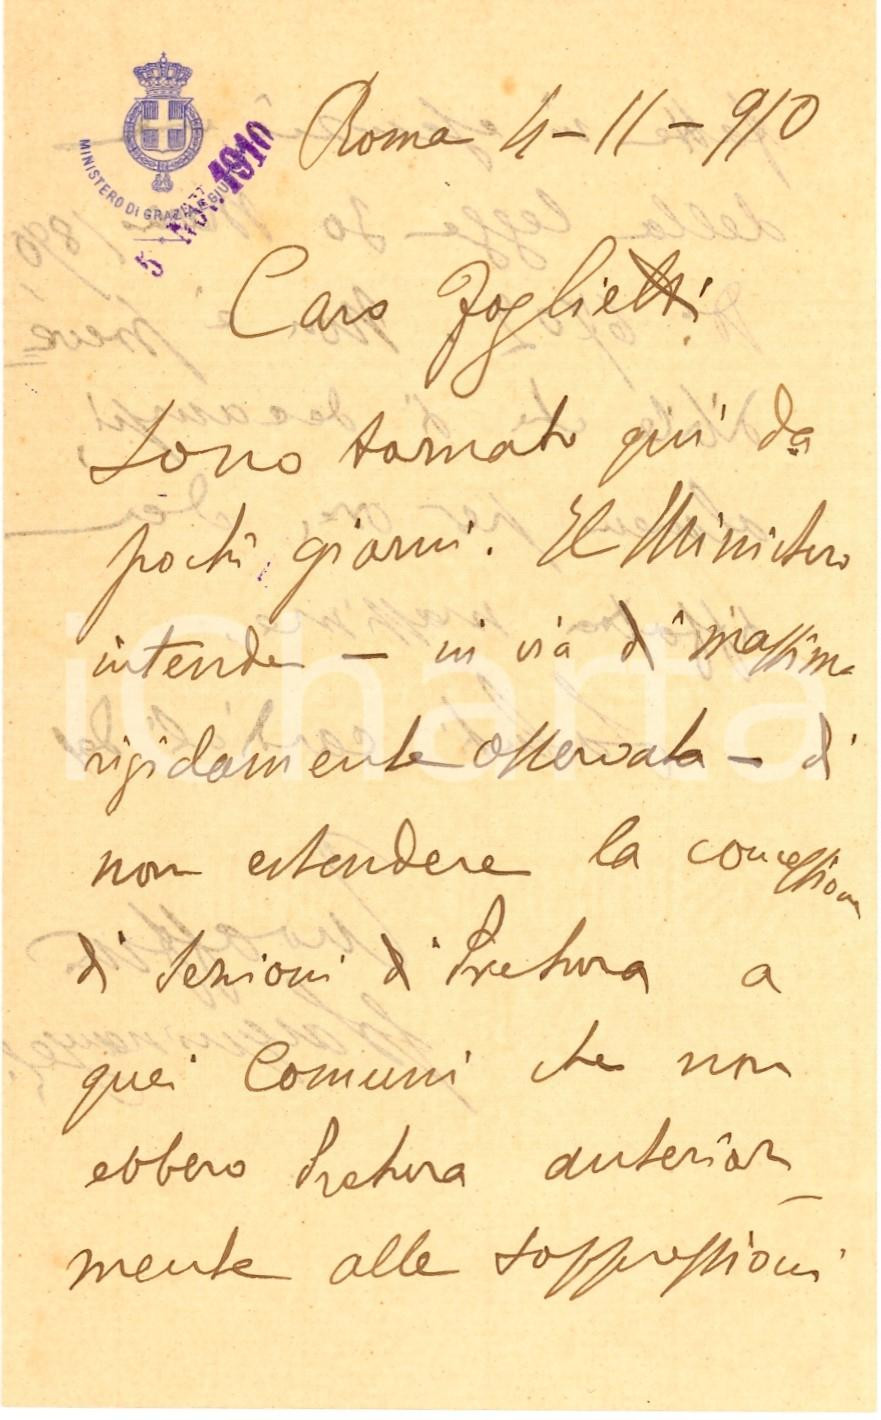 MINISTERO DI GRAZIA E GIU
5 NOV. 1910
Roma 4-11-910
Caro Foglietti
Sono tornato qui da
pochi giorni. Il Ministero
intende — in via di massima
rigidamente osservata — di
non estendere la concessione
di Sezioni di Pretura a
quei Comuni che non
ebbero Pretura anterior
mente alle soppressioni
iCharta